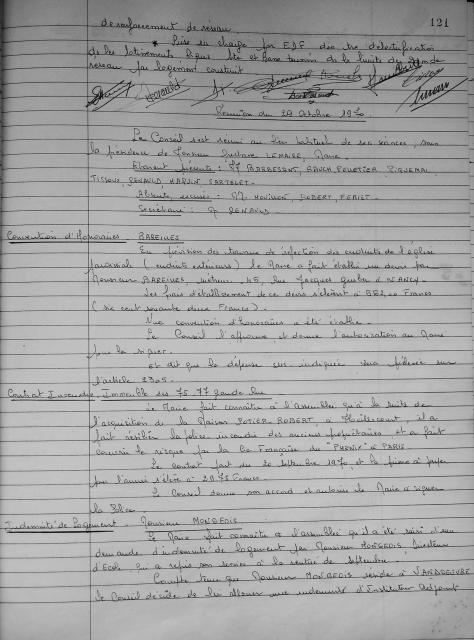 de renforcement de réseau
121
* Prise en charge par EDF des
de lotissements lignes et basse tension de la limite de
réseau par logement construit
Réunion du 29 Octobre 1970
Le Conseil s'est réuni au lieu habituel de ses séances, sous
la présidence de Monsieur Gustave LEMAIRE, Maire.
Etaient présents : MM BARBESANT, BAUCH, PELLETIER, PIQUEMAL
TISSOUX, RENAULD, SARTELET.
Absents excusés : MM. HOUILLON, ROBERT, FERIET.
Secrétaire : RENAULD
Convention d'Honoraires BAREILLES
En prévision des travaux de réfection des enduits de l'église
paroissiale (enduits extérieurs) le Maire a fait établir un devis par
Monsieur BAREILLES, métreur, 45, Rue Jacques à NANCY.
Les frais d'établissement de ce devis s'élèvent à 662,00 Francs
(six cent soixante deux Francs).
Une convention d'honoraires a été établie.
Le Conseil l'approuve et donne l'autorisation au Maire
pour la signer.
et dit que la dépense sus-indiquée sera prélevée sur
l'article 3305.
Contrat Incendie Immeuble sis 75.77 grande Rue
Le Maire fait connaître à l'assemblée qu'à la suite de
l'acquisition de la Maison POTIER ROBERT, à il a
fait résilier la police incendie des anciens propriétaires et a fait
couvrir le risque par la Cie Française du "PHENIX" à PARIS
Le contrat part du 20 Septembre 1970, et la prime à payer
pour l'année s'élève à Francs.
Le Conseil donne son accord et autorise le Maire à signer
la Police
Indemnité de Logement - Monsieur MONGEOIS
Le Maire fait connaître à l'assemblée qu'il a été saisi d'une
demande d'indemnité de logement par Monsieur MONGEOIS Directeur
d'Ecole qui a repris son service à la rentrée de Septembre.
Compte tenu que Monsieur MONGEOIS réside à VANDOEUVRE
le Conseil décide de lui allouer une indemnité d'Instituteur Adjoint